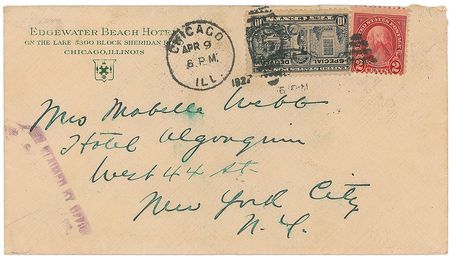 EDGEWATER BEACH HOTEL
ON THE LAKE 5300 BLOCK SHERIDAN R
CHICAGO, ILLINOIS
CHICAGO
APR 9
8 P.M.
ILL.
1927
UNITED STATES
SPECIAL
10
UNITED STATES POSTAGE
2 2
Mrs Mabelle Webb
Hotel Algonquin
West 44 St.
New York City
N.Y.